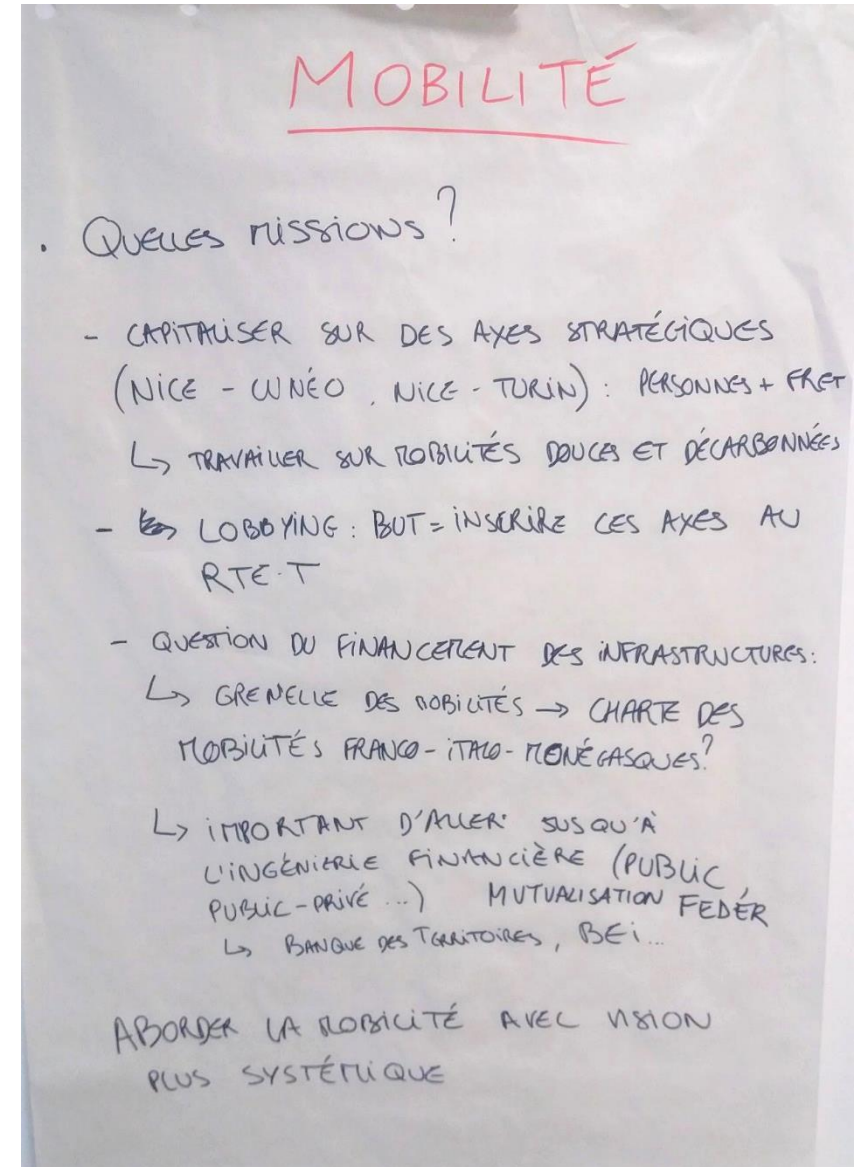 MOBILITÉ
. QUELLES MISSIONS ?
- CAPITALISER SUR DES AXES STRATÉGIQUES
(NICE - CUNÉO, NICE - TURIN) : PERSONNES + FRET
↳ TRAVAILLER SUR MOBILITÉS DOUCES ET DÉCARBONNÉES
- LOBBYING : BUT = INSCRIRE CES AXES AU
RTE-T
- QUESTION DU FINANCEMENT DES INFRASTRUCTURES :
↳ GRENELLE DES MOBILITÉS → CHARTE DES
MOBILITÉS FRANCO-ITALO-MONÉGASQUES ?
↳ IMPORTANT D'ALLER JUSQU'À
L'INGÉNIERIE FINANCIÈRE (PUBLIC,
PUBLIC-PRIVÉ ...) MUTUALISATION FEDER
↳ BANQUE DES TERRITOIRES, BEI ...
ABORDER LA MOBILITÉ AVEC VISION
PLUS SYSTÉMIQUE